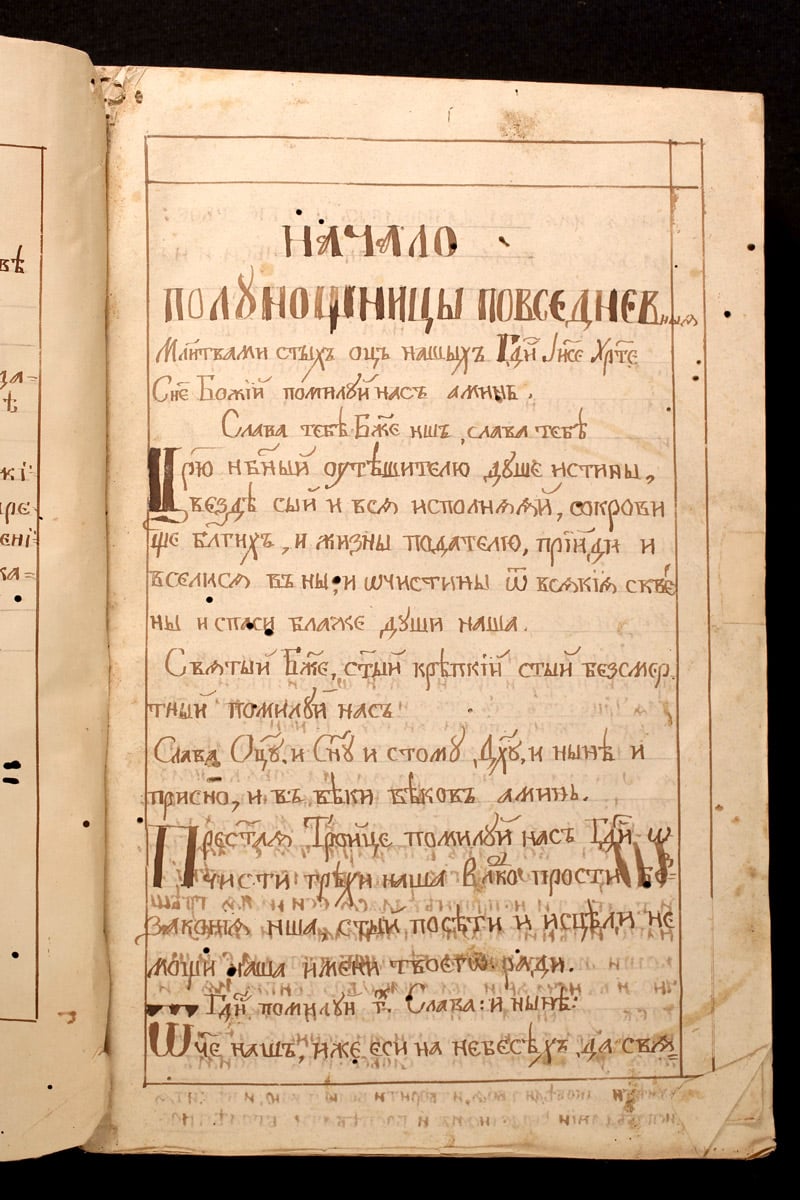 вѣ
НАЧАЛО
ПОЛꙊНОЩНИЦЫ ПОВСЕДНЕВныѧ
Мл҃твами ст҃ыхъ оц҃ъ нашыхъ Гд҃и Іис҃е Хрт҃е
Сн҃е Божїй помилꙋй насъ аминь.
Слава тебѣ Бж҃е нш҃ъ, слава тебѣ
Цр҃ю нбн҃ый оутѣшителю дꙋше истины,
везде сый и всѧ исполнѧѧй, сокрови
ще бл҃гихъ, и жизны подателю, прїиди и
вселисѧ въ ны, и ѡчистины ѿ всѧкїѧ скве
ны и спаси блаже дꙋши наша.
Свѧтый Бж҃е, ст҃ый крѣпкїй стый безсмер
тный помилꙋй насъ
Слава Оц҃ꙋ, и Сн҃ꙋ и стомꙋ Дх҃ꙋ, и нынѣ и
присно, и въ вѣки вѣковъ аминь.
Прест҃аѧ Троице помилꙋй насъ Гд҃и ѡ
чисти грѣхи наша Влд҃ко прости бе
законїѧ нша, стый посѣти и исцѣли не
мощи наша имени твоегѡ ради.
Гд҃и помилꙋй г҃. Слава: и нынѣ:
Ѿч҃е нашъ, иже еси на небесѣхъ, да свѧ=